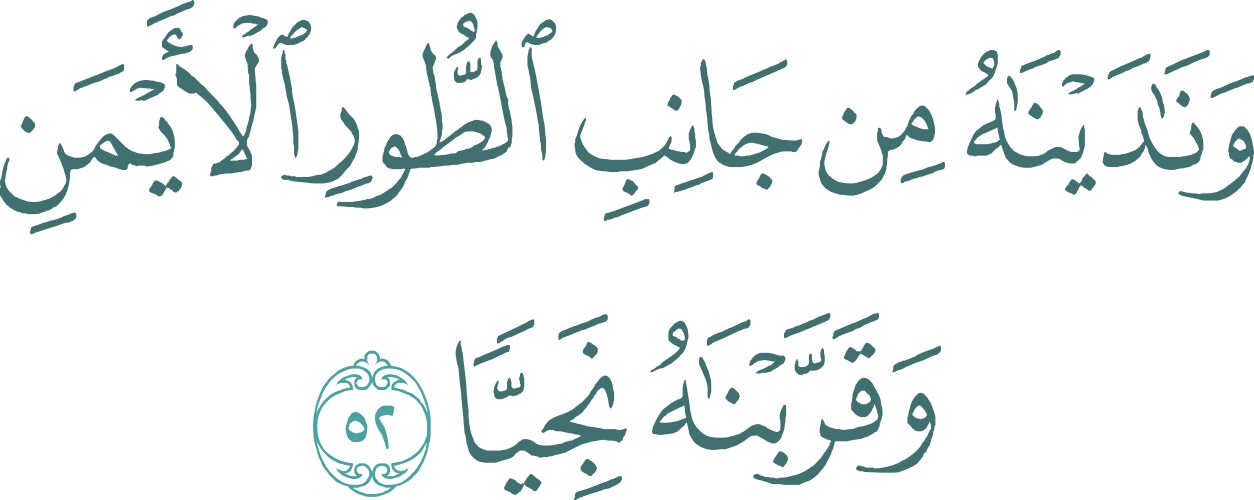 وَنَٰدَيْنَٰهُ مِن جَانِبِ ٱلطُّورِ ٱلْأَيْمَنِ
وَقَرَّبْنَٰهُ نَجِيًّا ٥٢